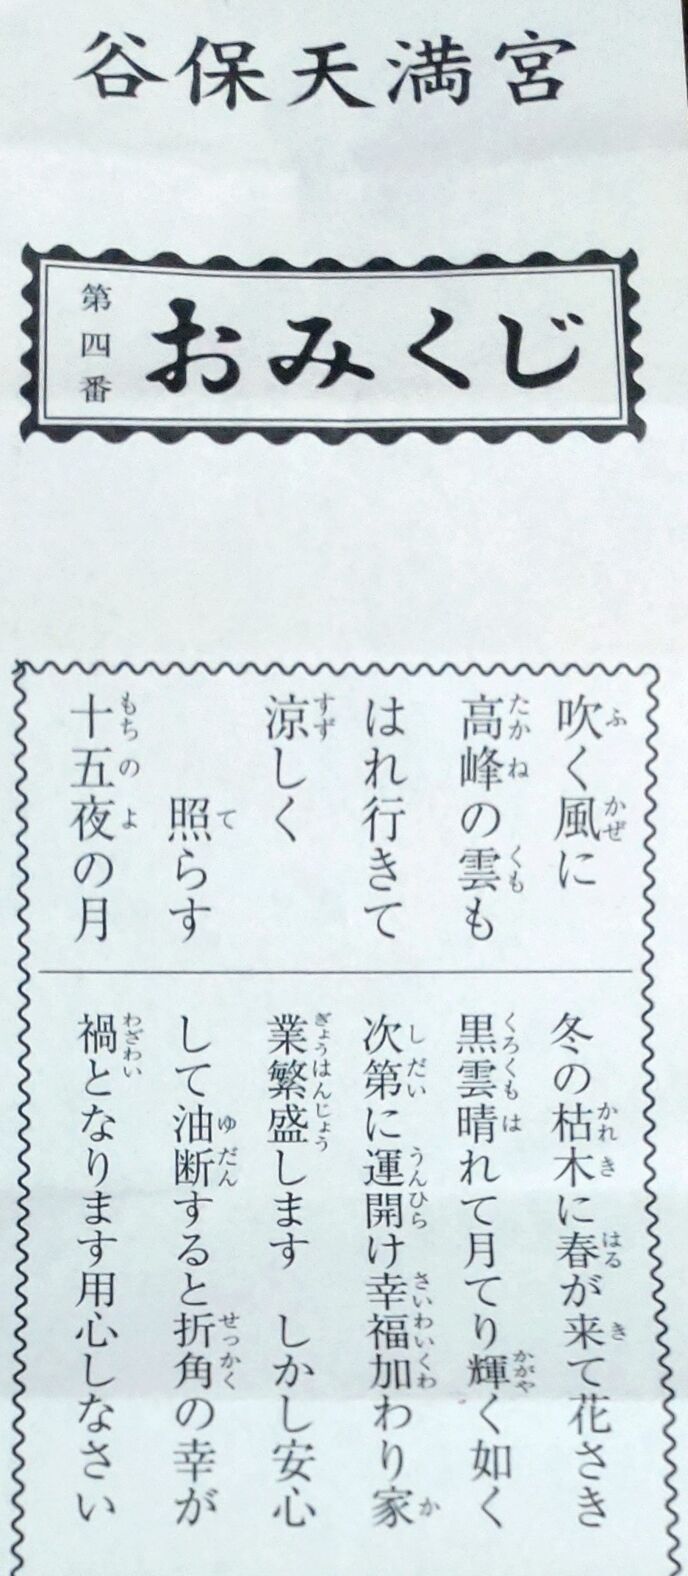 谷保天満宮
第四番
おみくじ
吹く風に
高峰の雲も
はれ行きて
涼しく
照らす
十五夜の月
冬の枯木に春が来て花さき
黒雲晴れて月てり輝く如く
次第に運開け幸福加わり家
業繁盛します　しかし安心
して油断すると折角の幸が
禍となります用心しなさい